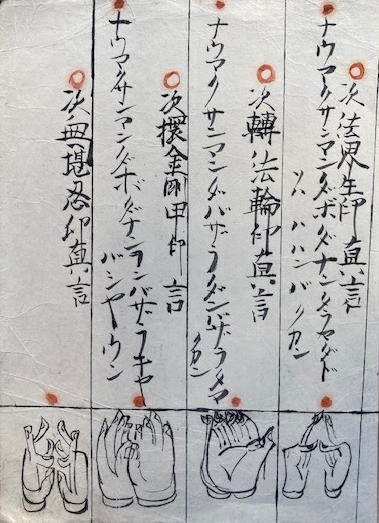 次法界生印真言
ナウマクサンマンダボダナンダラマダド
ソハハハンバ
次轉法輪印真言
ナウマクサンマンダバサラダンバザラタマ
クカン
次擐金剛甲印言
ナウマクサンマンダボダナンランバザラキャ
バシャヤウン
次無堪忍印真言